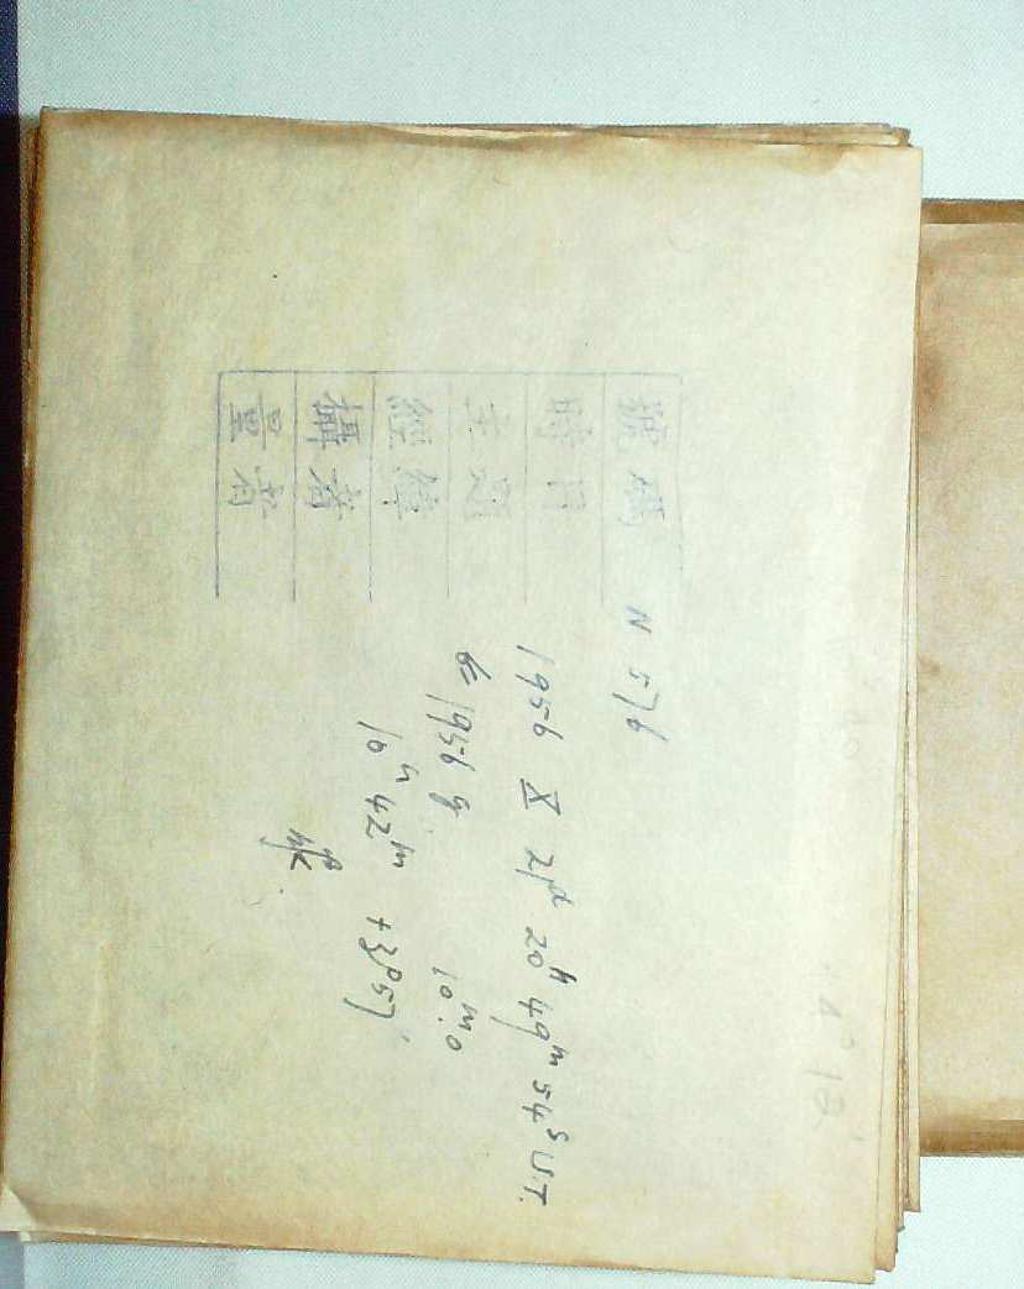 號碼 N 576
時日 1956 X 21d 20h 49m 54s U.T.
主題 1956 g 10m.0
經緯 10h 42m +3°57'
攝者
量者